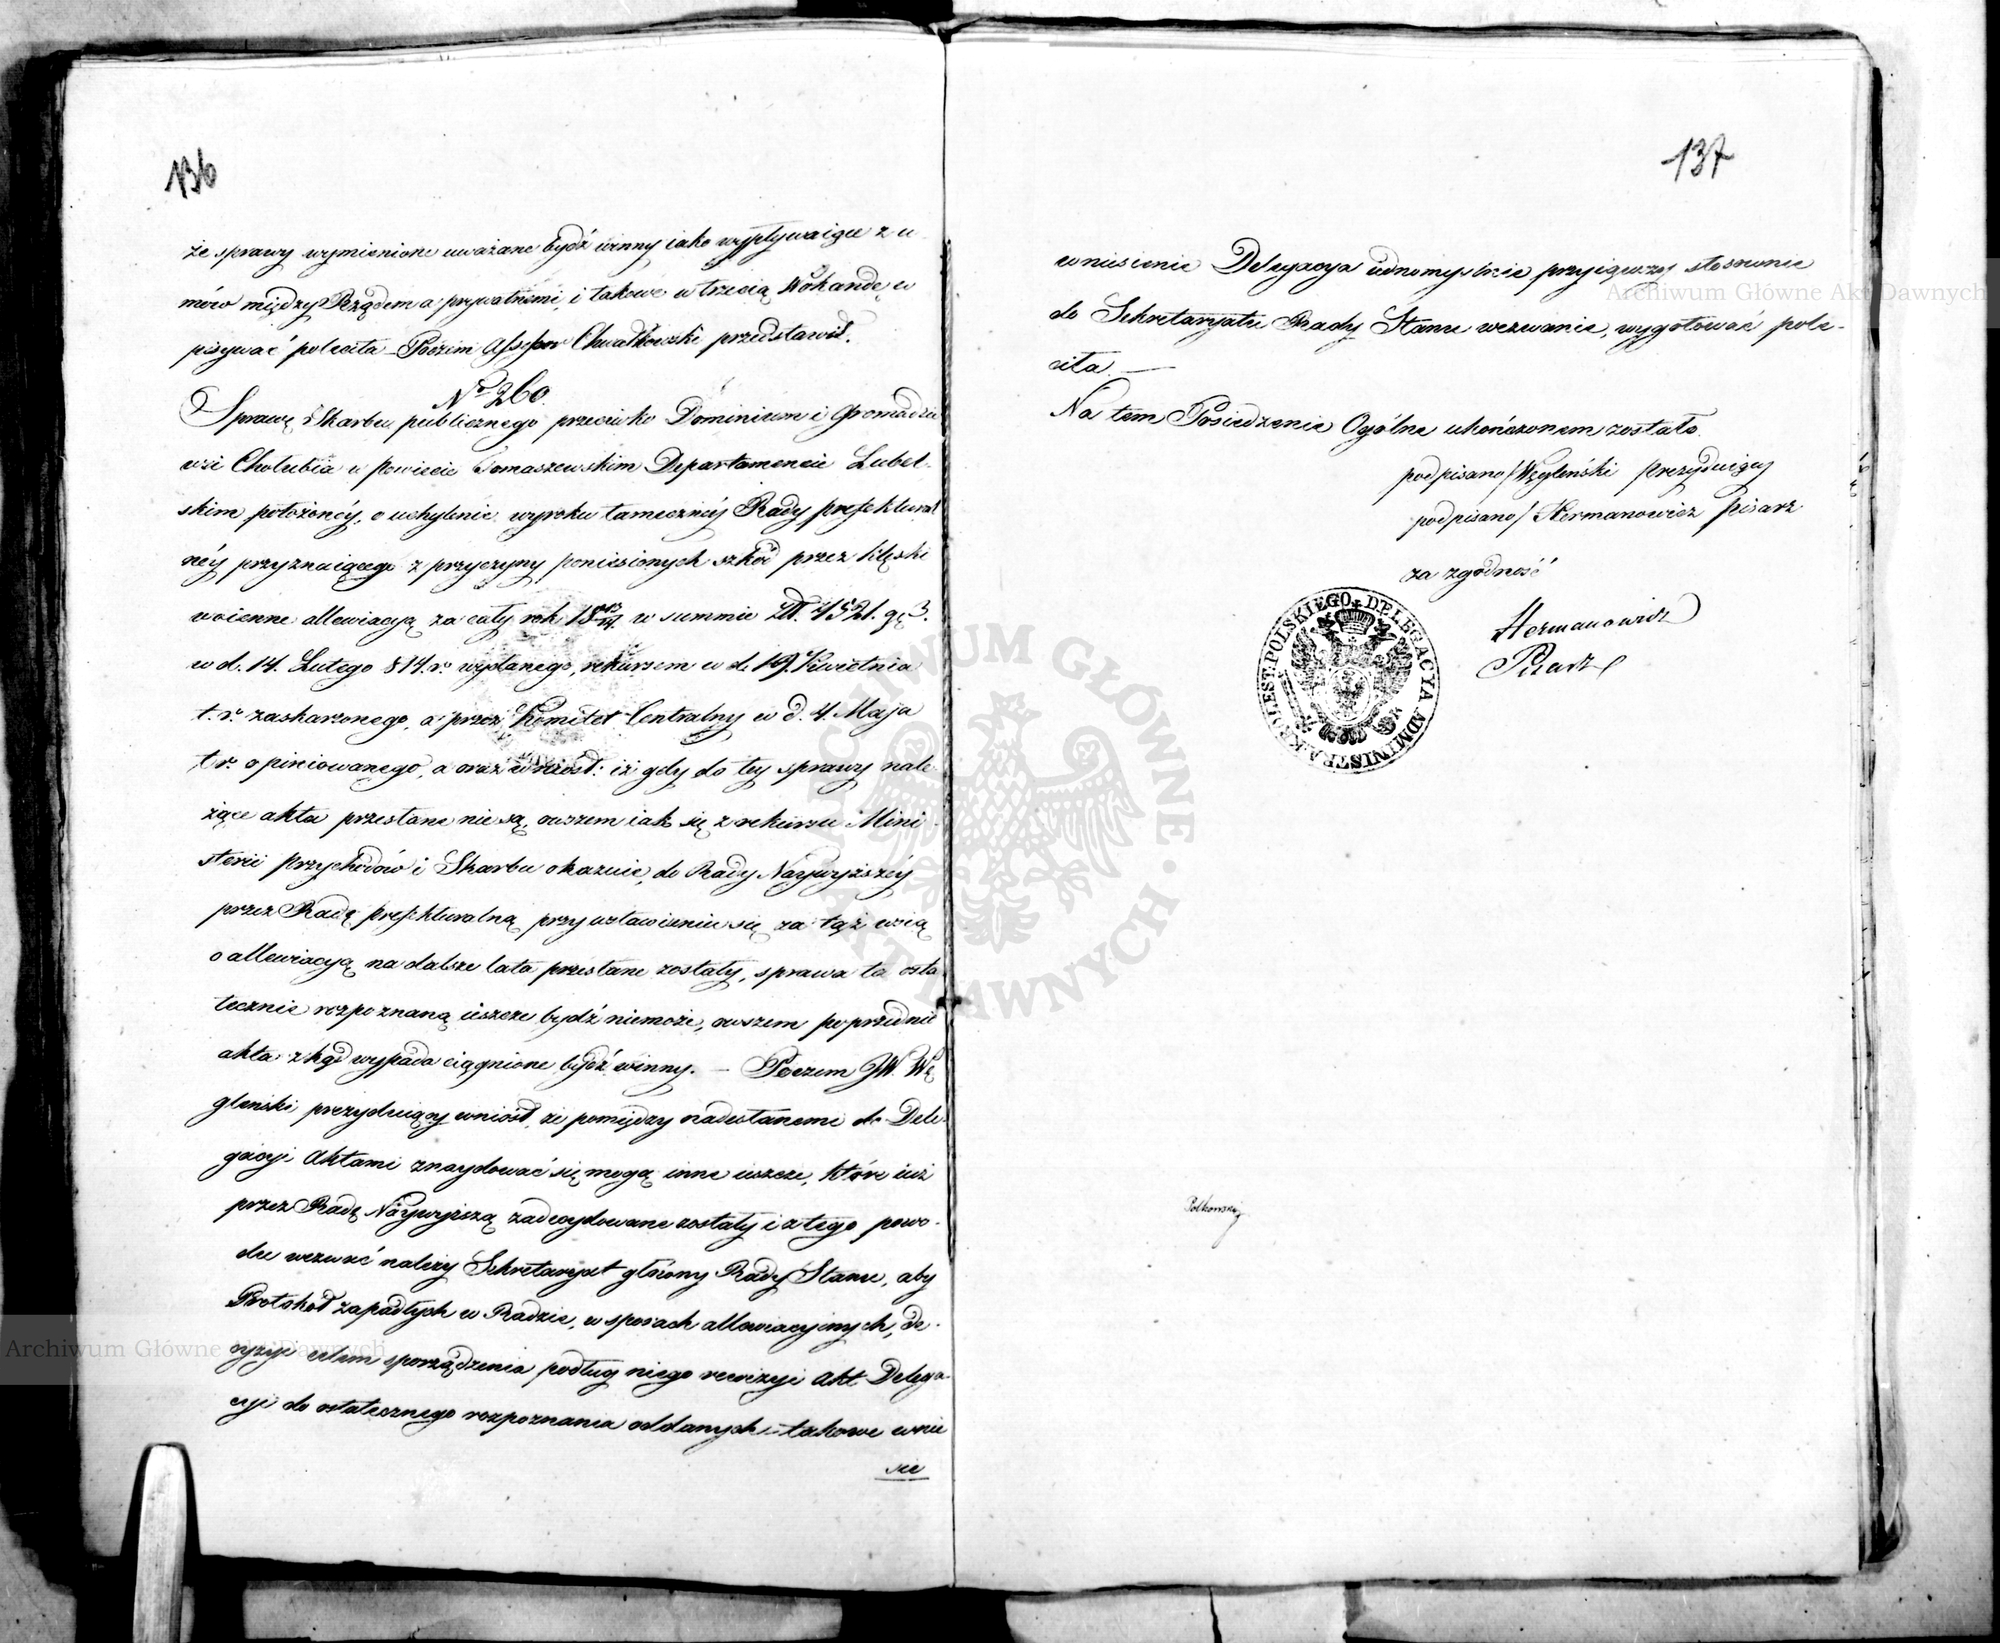 136
że sprawy wymienione uważane bydź winny iako wypływaiące z u
mów między Rządem a prywatnemi, i takowe w trzecią Wokandę w
pisywać poleciła – Poczim Assessor Chwalkowski przedstawił.
No 260.
Sprawę Skarbu publicznego przeciwko Dominium i Gromadzie
wsi Cholubia w powiecie Tomaszewskim Departamencie Lubel-
skim położonéy, o uchylenie wyroku tameczney Rady prefektural
néy przyznaiącego z przyczyny poniesionych szkód przez klęski
woienne allewiacyą za cały rok 1813/14 w summie Złł. 4521. g. 3.
w d. 14. Lutego 814. r. wydanego, rekursem w d. 19. Kwietnia
t. r. zaskarżonego, a przez Komitet Centralny w d. 4. Maja
t. r. opiniowanego, a oraz wniósł: iż gdy do tey sprawy nale
żące akta przesłane nie są, owszem iak się z rekursu Mini
sterii Przychodów i Skarbu okazuie, do Rady Naywyższéy
przez Radę prefekturalną przy wstawieniu się za tąż wsią
o allewiacyą na dalsze lata przesłane zostały, sprawa ta osta
tecznie rozpoznaną ieszcze bydź niemoże, owszem poprzednie
akta zkąd wypada ciągnione bydź winny. – Poczem JW. Wę
gleński prezyduiący wniósł, że pomiędzy nadesłanemi do Dele-
gacyi Aktami znaydować się mogą inne ieszcze, które iuż
przez Radę Naywyższą zadecydowane zostały i z tego powo-
du wezwać należy Sekretaryat główny Rady Stanu, aby
Protokół zapadłych w Radzie, w sporach allewiacyinych, de-
cyzyi celem sporządzenia podług niego rewizyi Akt Delega-
cyi do ostatecznego rozpoznania oddanych – takowe wnie
sie
137
wniesienie Delegacya iednomyślnie przyiąwszy stosowne
do Sekretaryatu Rady Stanu wezwanie, wygotować pole-
ciła. —
Na tem Posiedzenie Ogólne ukończonem zostało.
podpisano/ Węgleński Prezyduiący
podpisano/ Hermanowicz Pisarz
za zgodność
Hermanowicz
Pisarz
KROLEST: POLSKIEGO DELEGACYA ADMINISTR:
Polkowski
Archiwum Główne Akt Dawnych
ARCHIWUM GŁÓWNE AKT DAWNYCH
Archiwum Główne Akt Dawnych